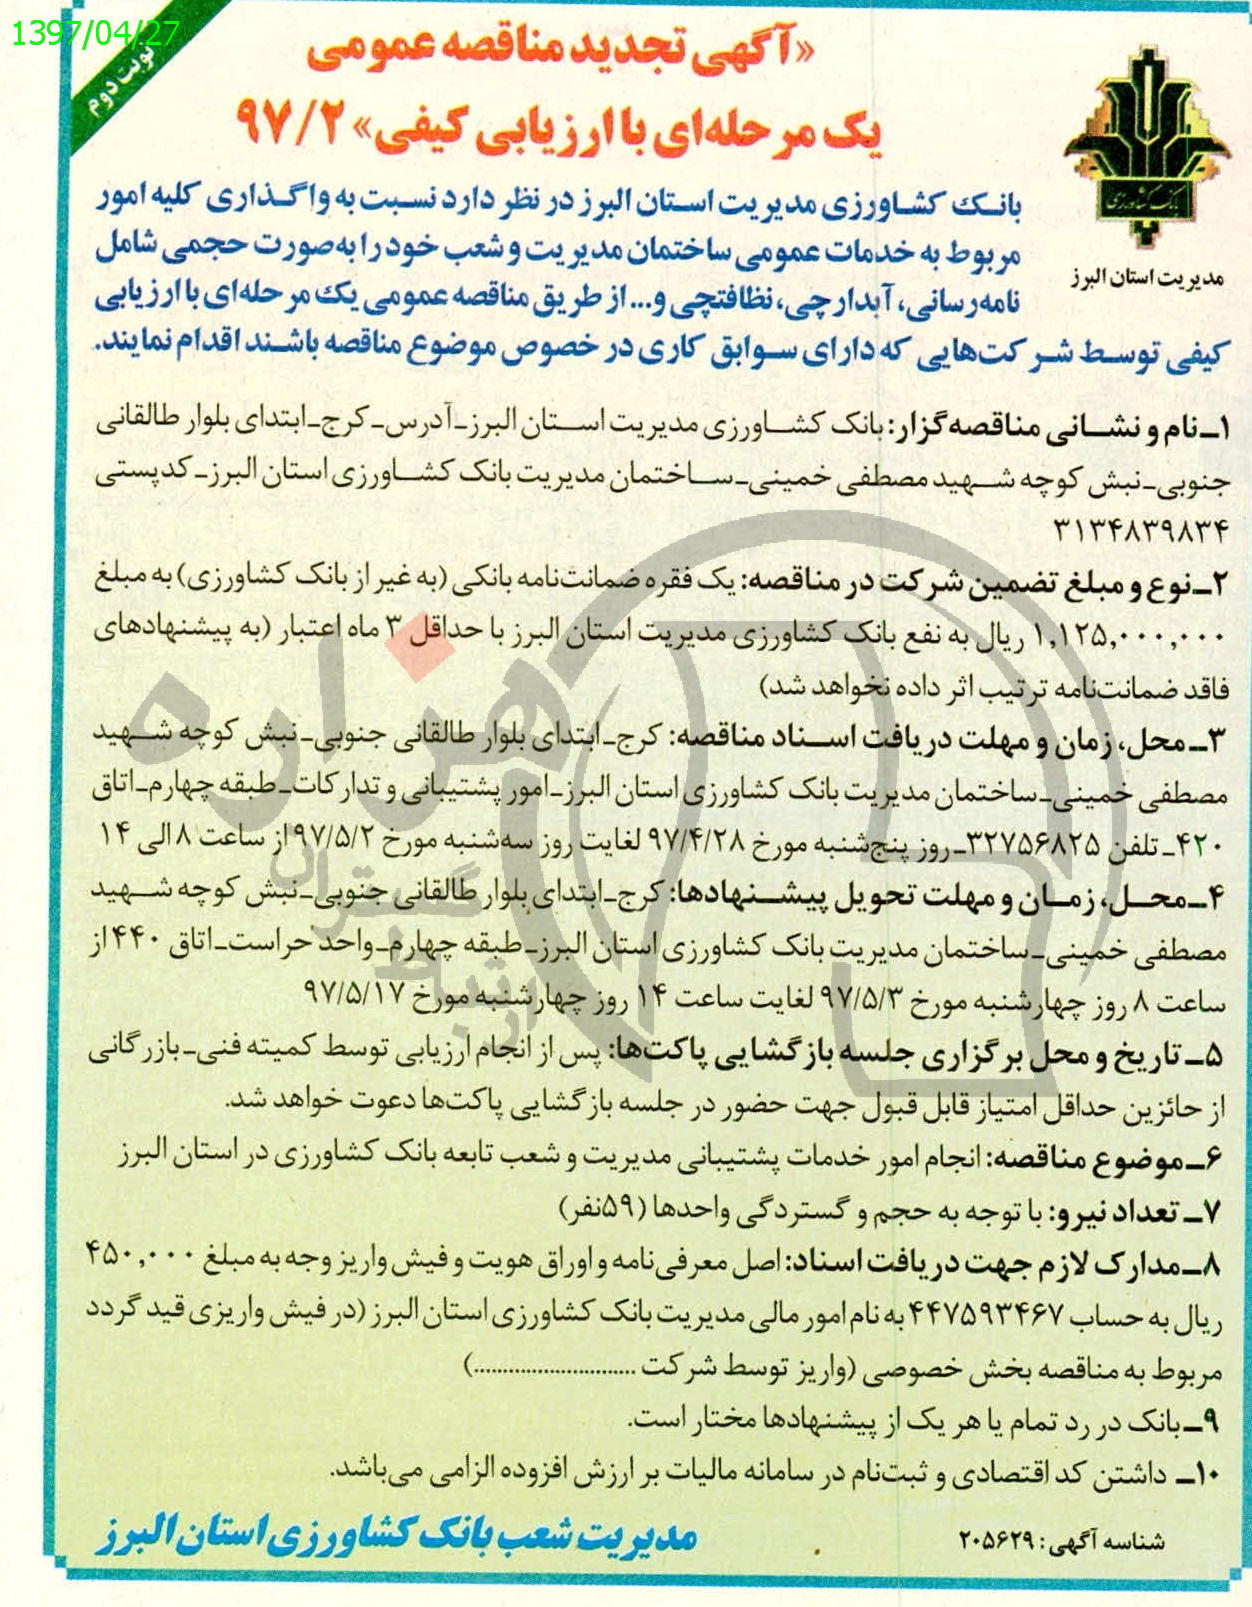 1397/04/27
نوبت دوم
«آگهی تجدید مناقصه عمومی
یک مرحله‌ای با ارزیابی کیفی» ۹۷/۲
بانک کشاورزی
مدیریت استان البرز
بانک کشاورزی مدیریت استان البرز در نظر دارد نسبت به واگذاری کلیه امور
مربوط به خدمات عمومی ساختمان مدیریت و شعب خود را به‌صورت حجمی شامل
نامه‌رسانی، آبدارچی، نظافتچی و... از طریق مناقصه عمومی یک مرحله‌ای با ارزیابی
کیفی توسط شرکت‌هایی که دارای سوابق کاری در خصوص موضوع مناقصه باشند اقدام نمایند.
۱ـ نام و نشانی مناقصه‌گزار: بانک کشاورزی مدیریت استان البرز ـ آدرس ـ کرج ـ ابتدای بلوار طالقانی
جنوبی ـ نبش کوچه شهید مصطفی خمینی ـ ساختمان مدیریت بانک کشاورزی استان البرز ـ کدپستی
۳۱۳۴۸۳۹۸۳۴
۲ـ نوع و مبلغ تضمین شرکت در مناقصه: یک فقره ضمانت‌نامه بانکی (به غیر از بانک کشاورزی) به مبلغ
۱,۱۲۵,۰۰۰,۰۰۰ ریال به نفع بانک کشاورزی مدیریت استان البرز با حداقل ۳ ماه اعتبار (به پیشنهادهای
فاقد ضمانت‌نامه ترتیب اثر داده نخواهد شد)
۳ـ محل، زمان و مهلت دریافت اسناد مناقصه: کرج ـ ابتدای بلوار طالقانی جنوبی ـ نبش کوچه شهید
مصطفی خمینی ـ ساختمان مدیریت بانک کشاورزی استان البرز ـ امور پشتیبانی و تدارکات ـ طبقه چهارم ـ اتاق
۴۲۰ ـ تلفن ۳۲۷۵۶۸۲۵ ـ روز پنج‌شنبه مورخ ۹۷/۴/۲۸ لغایت روز سه‌شنبه مورخ ۹۷/۵/۲ از ساعت ۸ الی ۱۴
۴ـ محل، زمان و مهلت تحویل پیشنهادها: کرج ـ ابتدای بلوار طالقانی جنوبی ـ نبش کوچه شهید
مصطفی خمینی ـ ساختمان مدیریت بانک کشاورزی استان البرز ـ طبقه چهارم ـ واحد حراست ـ اتاق ۴۴۰ از
ساعت ۸ روز چهارشنبه مورخ ۹۷/۵/۳ لغایت ساعت ۱۴ روز چهارشنبه مورخ ۹۷/۵/۱۷
۵ـ تاریخ و محل برگزاری جلسه بازگشایی پاکت‌ها: پس از انجام ارزیابی توسط کمیته فنی ـ بازرگانی
از حائزین حداقل امتیاز قابل قبول جهت حضور در جلسه بازگشایی پاکت‌ها دعوت خواهد شد.
۶ـ موضوع مناقصه: انجام امور خدمات پشتیبانی مدیریت و شعب تابعه بانک کشاورزی در استان البرز
۷ـ تعداد نیرو: با توجه به حجم و گستردگی واحدها (۵۹نفر)
۸ـ مدارک لازم جهت دریافت اسناد: اصل معرفی‌نامه و اوراق هویت و فیش واریز وجه به مبلغ ۴۵۰,۰۰۰
ریال به حساب ۴۴۷۵۹۳۴۶۷ به نام امور مالی مدیریت بانک کشاورزی استان البرز (در فیش واریزی قید گردد
مربوط به مناقصه بخش خصوصی (واریز توسط شرکت ............................)
۹ـ بانک در رد تمام یا هر یک از پیشنهادها مختار است.
۱۰ـ داشتن کد اقتصادی و ثبت‌نام در سامانه مالیات بر ارزش افزوده الزامی می‌باشد.
شناسه آگهی: ۲۰۵۶۲۹
مدیریت شعب بانک کشاورزی استان البرز